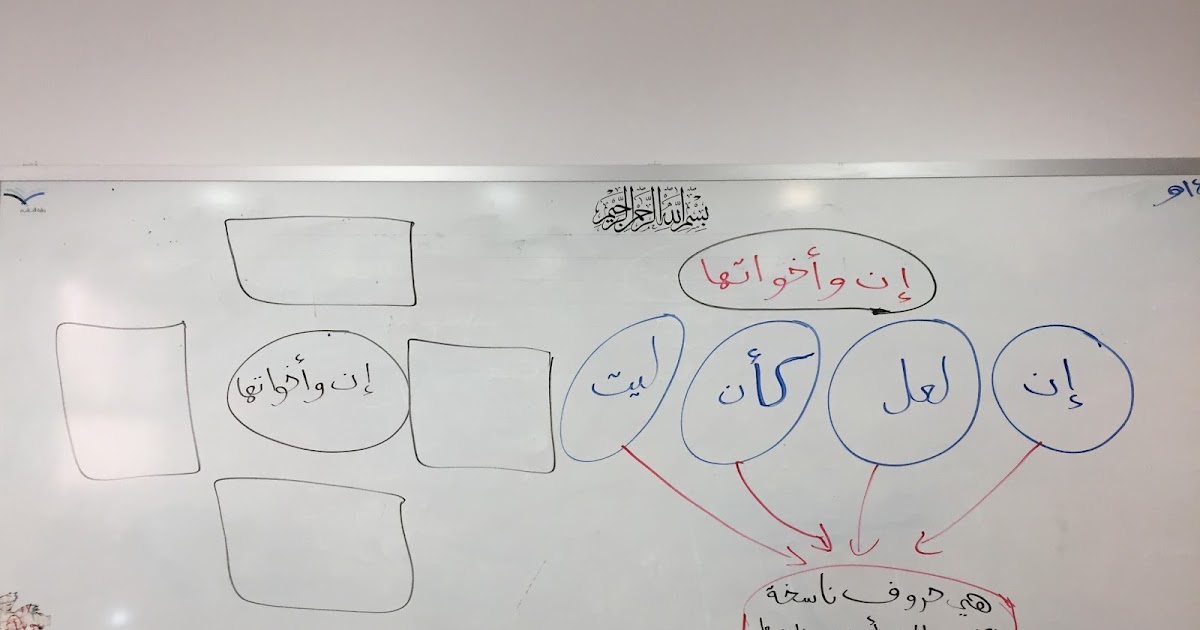 بسم الله الرحمن الرحيم
إن وأخواتها
إن
لعل
كأن
ليت
إن وأخواتها
هي حروف ناسخة